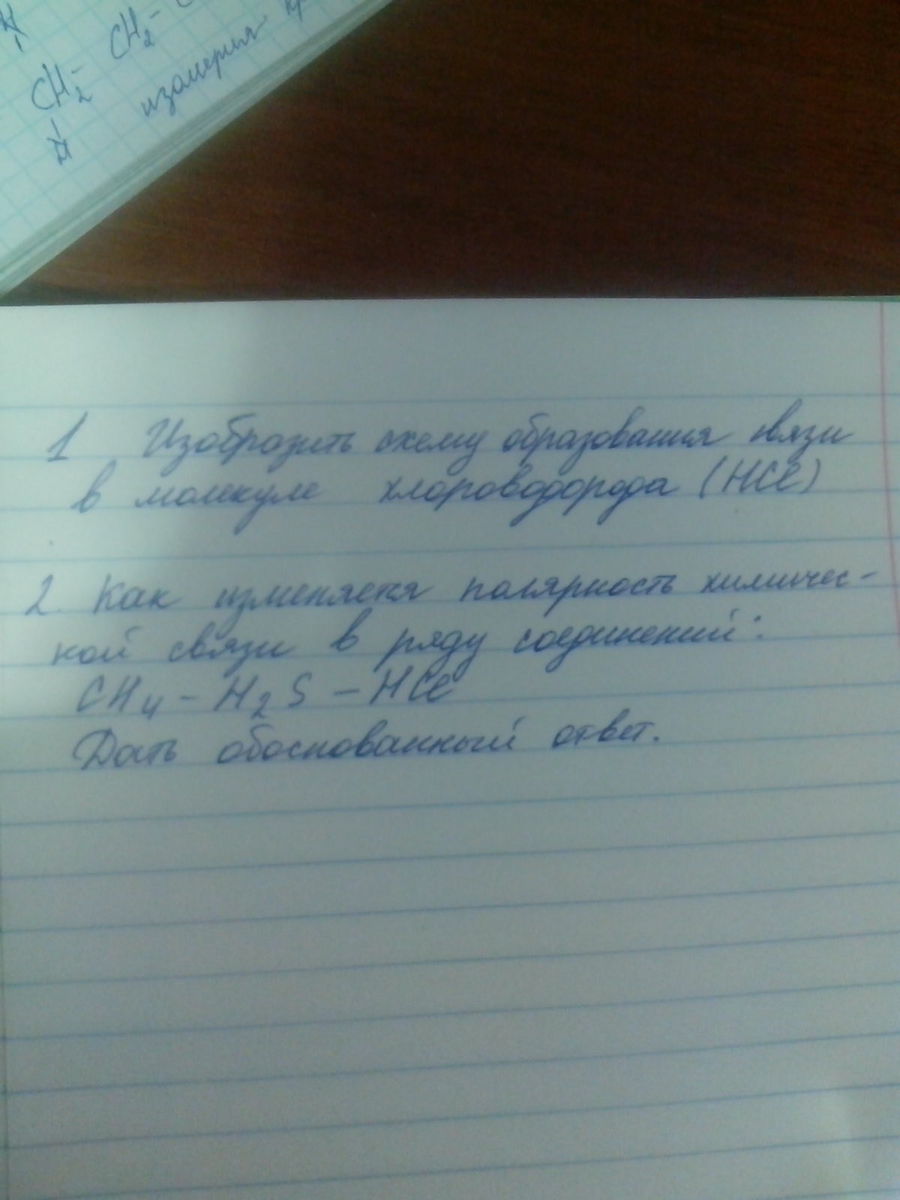 CH₂ - CH₂ -
изомерия
1 Изобразить схему образования связи
в молекуле хлороводорода (HCl)
2. Как изменяется полярность химичес-
кой связи в ряду соединений:
CH₄ - H₂S - HCl
Дать обоснованный ответ.